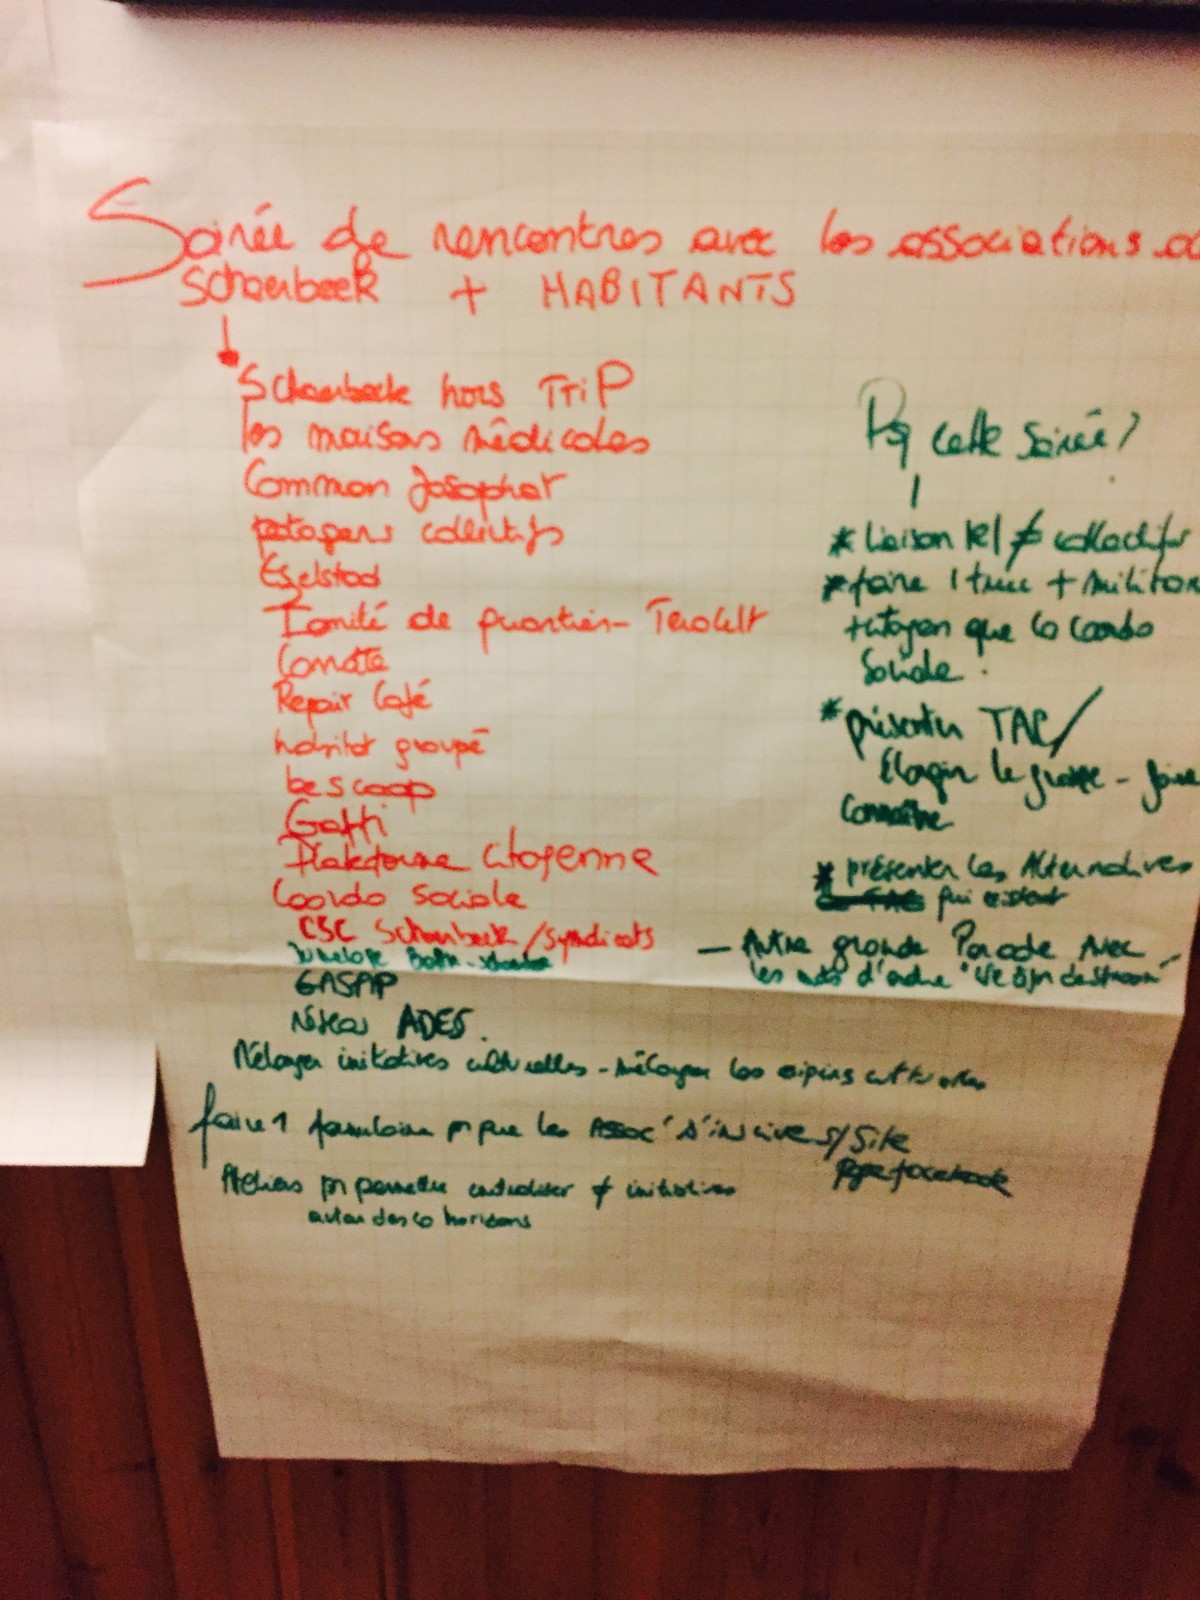 Soirée de rencontres avec les associations
Schaerbeek + HABITANTS
Schaerbeek hors TriP
les maisons médicales
Common Josaphat
potagers collectifs
Eselstad
Comité de quartier - Terdelt
Comète
Repair Café
habitat groupé
bescoop
Gatti
Plateforme citoyenne
Coordo sociale
CSC Schaerbeek / syndicats
GASAP
Réseau ADES.
Mélanger initiatives culturelles - mélanger les
faire 1 formulaire pr que les Assoc' s'inscrivent s/ Site
page facebook
Ateliers pr permettre ≠ initiatives
autour des horizons
Pq cette soirée?
* liaison ≠ collectifs
* faire 1 truc +
+ citoyen que la coordo
Sociale.
* présenter TAC/
Elargir le groupe - faire
Connaître
* présenter les Alternatives
qui existent
— Autre grande Parade Avec
les mots d'ordre